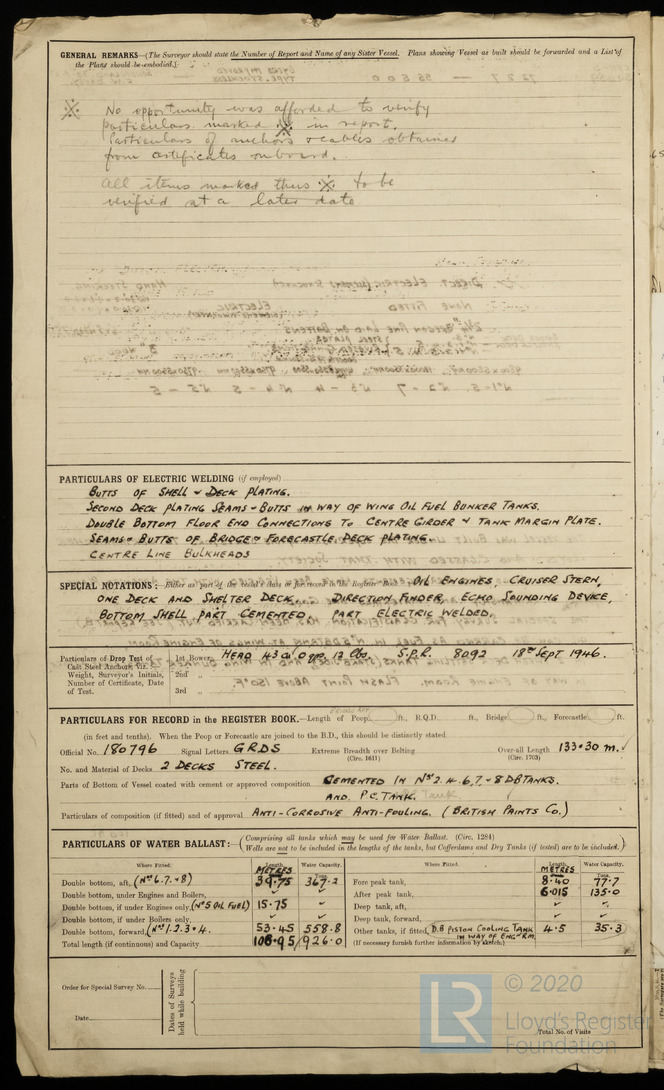 GENERAL REMARKS—(The Surveyor should state the Number of Report and Name of any Sister Vessel. Plans showing Vessel as built should be forwarded and a List of
the Plans should be embodied.)
※ No opportunity was afforded to verify
particulars marked ※ in report.
Particulars of anchors & cables obtained
from certificates onboard.
All items marked thus ※ to be
verified at a later date
PARTICULARS OF ELECTRIC WELDING (if employed)
BUTTS OF SHELL & DECK PLATING.
SECOND DECK PLATING SEAMS & BUTTS IN WAY OF WING OIL FUEL BUNKER TANKS.
DOUBLE BOTTOM FLOOR END CONNECTIONS TO CENTRE GIRDER & TANK MARGIN PLATE.
SEAMS & BUTTS OF BRIDGE & FORECASTLE DECK PLATING.
CENTRE LINE BULKHEADS
SPECIAL NOTATIONS:—Either as part of the vessel's class or for record in the Register Book. OIL ENGINES, CRUISER STERN,
ONE DECK AND SHELTER DECK. DIRECTION FINDER, ECHO SOUNDING DEVICE,
BOTTOM SHELL PART CEMENTED. PART ELECTRIC WELDED.
Particulars of Drop Test of Cast Steel Anchors, viz.:— Weight, Surveyor's Initials, Number of Certificate, Date of Test.
1st Bower HEAD 43 c 0 qr. 12 lbs. S.P.R. 8092 18th SEPT 1946.
2nd „
3rd „
PARTICULARS FOR RECORD in the REGISTER BOOK.—Length of Poop ft., R.Q.D. ft., Bridge ft., Forecastle ft.
(in feet and tenths). When the Poop or Forecastle are joined to the B.D., this should be distinctly stated.
Official No. 180796 Signal Letters GRDS Extreme Breadth over Belting (Circ. 1611) Over-all Length 133.30 m. (Circ. 1703)
No. and Material of Decks 2 DECKS STEEL.
Parts of Bottom of Vessel coated with cement or approved composition CEMENTED IN Nos 2. 4. 6, 7, & 8 DB TANKS.
AND P.C. TANK.
Particulars of composition (if fitted) and of approval ANTI-CORROSIVE ANTI-FOULING. (BRITISH PAINTS CO.)
PARTICULARS OF WATER BALLAST:—(Comprising all tanks which may be used for Water Ballast. (Circ. 1284)
Wells are not to be included in the lengths of the tanks, but Cofferdams and Dry Tanks (if tested) are to be included.)
Where Fitted. Length. METRES Water Capacity. Tons. Where Fitted. Length. METRES Water Capacity. Tons.
Double bottom, aft, (Nos 6. 7. & 8) 39.75 367.2 Fore peak tank, 8.40 77.7
Double bottom, under Engines and Boilers, ✓ ✓ After peak tank, 6.015 135.0
Double bottom, if under Engines only, (No 5 OIL FUEL) 15.75 Deep tank, aft,
Double bottom, if under Boilers only, ✓ Deep tank, forward,
Double bottom, forward, (Nos 1. 2. 3 & 4. 53.45 558.8 Other tanks, if fitted, D.B PISTON COOLING TANK IN WAY OF ENG. RM. 4.5 35.3
Total length (if continuous) and Capacity 108.95 926.0 (If necessary furnish further information by sketch.)
Order for Special Survey No.
Date
Dates of Surveys held while building
Total No. of Visits
© 2020
LR
Lloyd's Register
Foundation